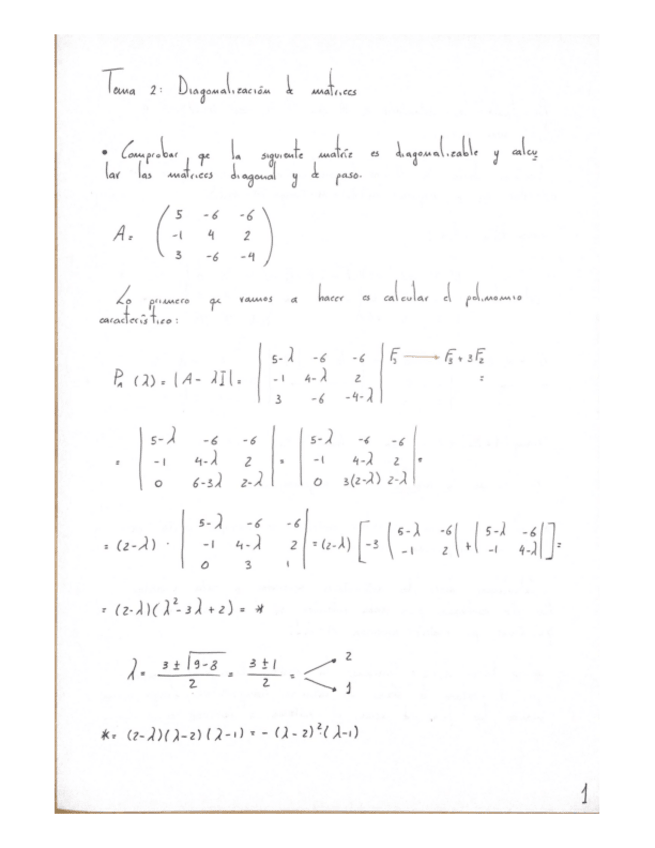 Tema 2: Diagonalización de matrices
• Comprobar que la siguiente matriz es diagonalizable y calcu
lar las matrices diagonal y de paso.
A= ( 5 -6 -6
-1 4 2
3 -6 -4 )
Lo primero que vamos a hacer es calcular el polinomio
característico:
P_A (λ) = |A - λI| = | 5-λ -6 -6 | F₃ → F₃ + 3F₂
| -1 4-λ 2 | =
| 3 -6 -4-λ |
= | 5-λ -6 -6 | = | 5-λ -6 -6 | =
| -1 4-λ 2 | | -1 4-λ 2 |
| 0 6-3λ 2-λ | | 0 3(2-λ) 2-λ |
= (2-λ) · | 5-λ -6 -6 | = (2-λ) [ -3 | 5-λ -6 | + | 5-λ -6 | ] =
| -1 4-λ 2 | | -1 2 | | -1 4-λ |
| 0 3 1 |
= (2-λ)(λ²-3λ+2) = *
λ = (3 ± √(9-8))/2 = (3 ± 1)/2 = 2
1
* = (2-λ)(λ-2)(λ-1) = -(λ-2)²·(λ-1)
1